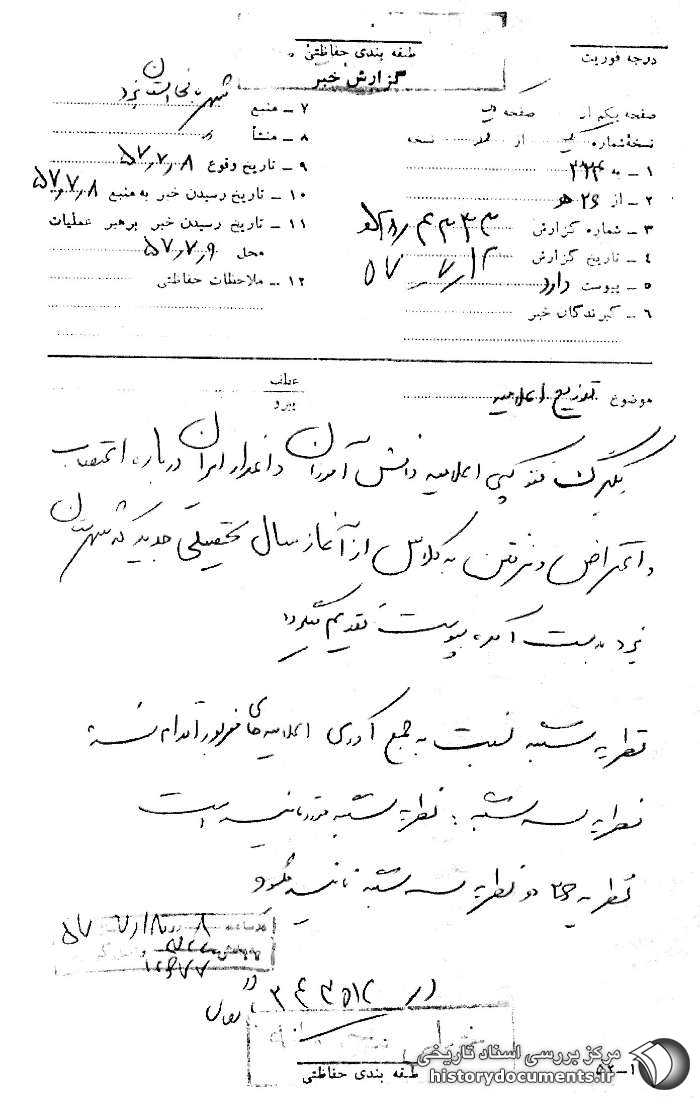 طبقه بندی حفاظتی
گزارش خبر
درجه فوریت
صفحه یکم از صفحه
نسخه شماره از نسخه
۱ - به ۳۲۴
۲ - از ۲۶ ه
۳ - شماره گزارش
۴ - تاریخ گزارش ۵۷/۷/۱۲
۵ - پیوست دارد
۶ - گیرندگان خبر
۷ - منبع شهربانی استان یزد
۸ - منشأ
۹ - تاریخ وقوع ۵۷/۷/۸
۱۰ - تاریخ رسیدن خبر به منبع ۵۷/۷/۸
۱۱ - تاریخ رسیدن خبر برهبر عملیات
محل ۵۷/۷/۹
۱۲ - ملاحظات حفاظتی
موضوع توزیع اعلامیه
عطف
پیرو
یکبرگ فتوکپی اعلامیه دانش آموزان داغدار ایران درباره اعتصاب
و اعتراض و نرفتن به کلاس از آغاز سال تحصیلی جدید که شهرستان
یزد بدست آمده بپیوست تقدیم میگردد
نظریه شنبه نسبت به جمع آوری اعلامیه های مزبور اقدام
نظریه سه شنبه : نظریه شنبه مورد تائید است
نظریه نظریه سه شنبه تائید میگردد
۳۴۳۵۱۲
طبقه بندی حفاظتی
مرکز بررسی اسناد تاریخی
historydocuments.ir